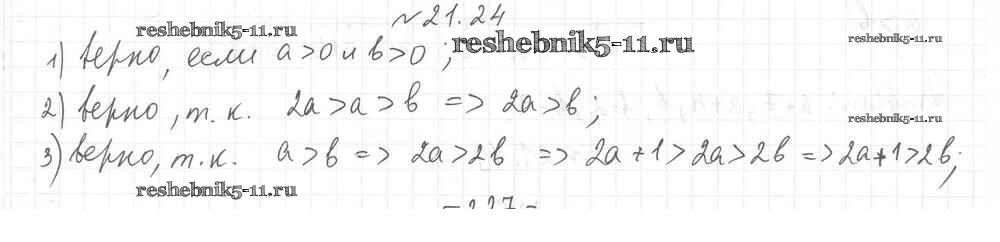 №21.24
reshebnik5-11.ru
reshebnik5-11.ru
reshebnik5-11.ru
1) верно, если a>0 и b>0;
2) верно, т.к. 2a>a>b => 2a>b;
reshebnik5-11.ru
3) верно, т.к. a>b => 2a>2b => 2a+1>2a>2b => 2a+1>2b;
reshebnik5-11.ru